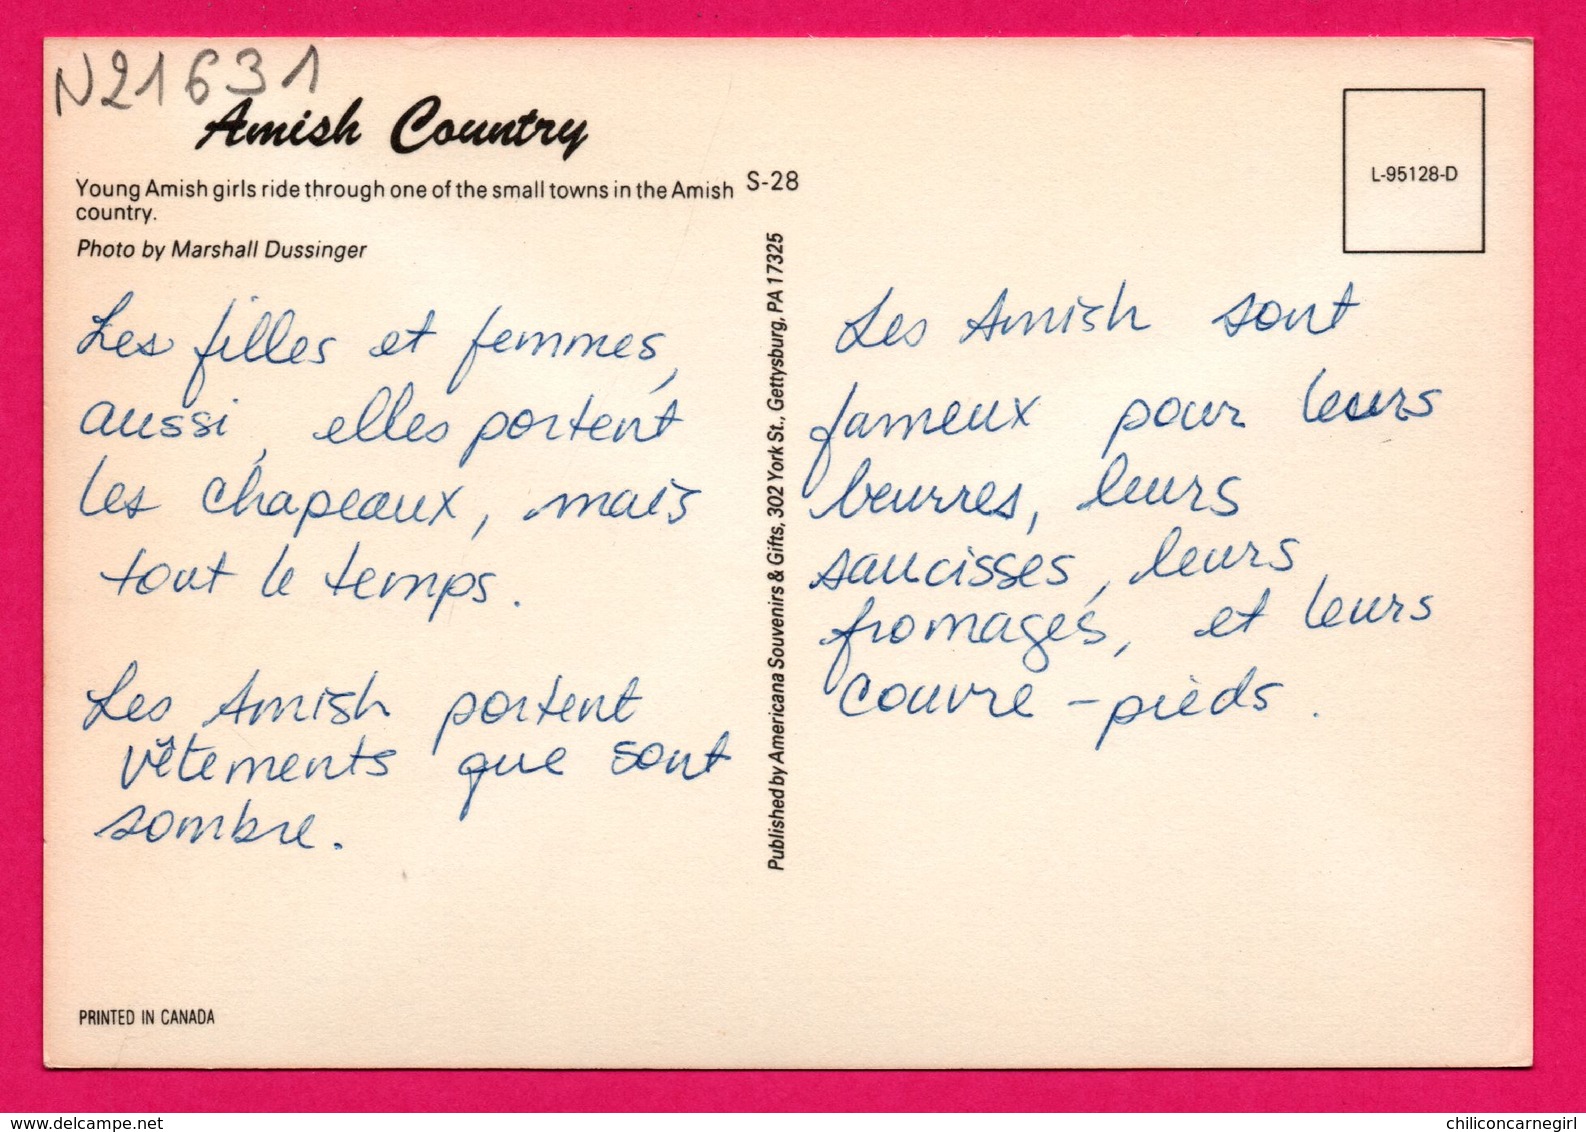 N21631
Amish Country
Young Amish girls ride through one of the small towns in the Amish
country.
S-28
Photo by Marshall Dussinger
Les filles et femmes,
aussi, elles portent
les chapeaux, mais
tout le temps.
Les Amish portent
vêtements que sont
sombre.
PRINTED IN CANADA
Published by Americana Souvenirs & Gifts, 302 York St., Gettysburg, PA 17325
L-95128-D
Les Amish sont
fameux pour leurs
beurres, leurs
saucisses, leurs
fromages, et leurs
couvre-pieds.
delcampe.net
chiliconcarnegirl